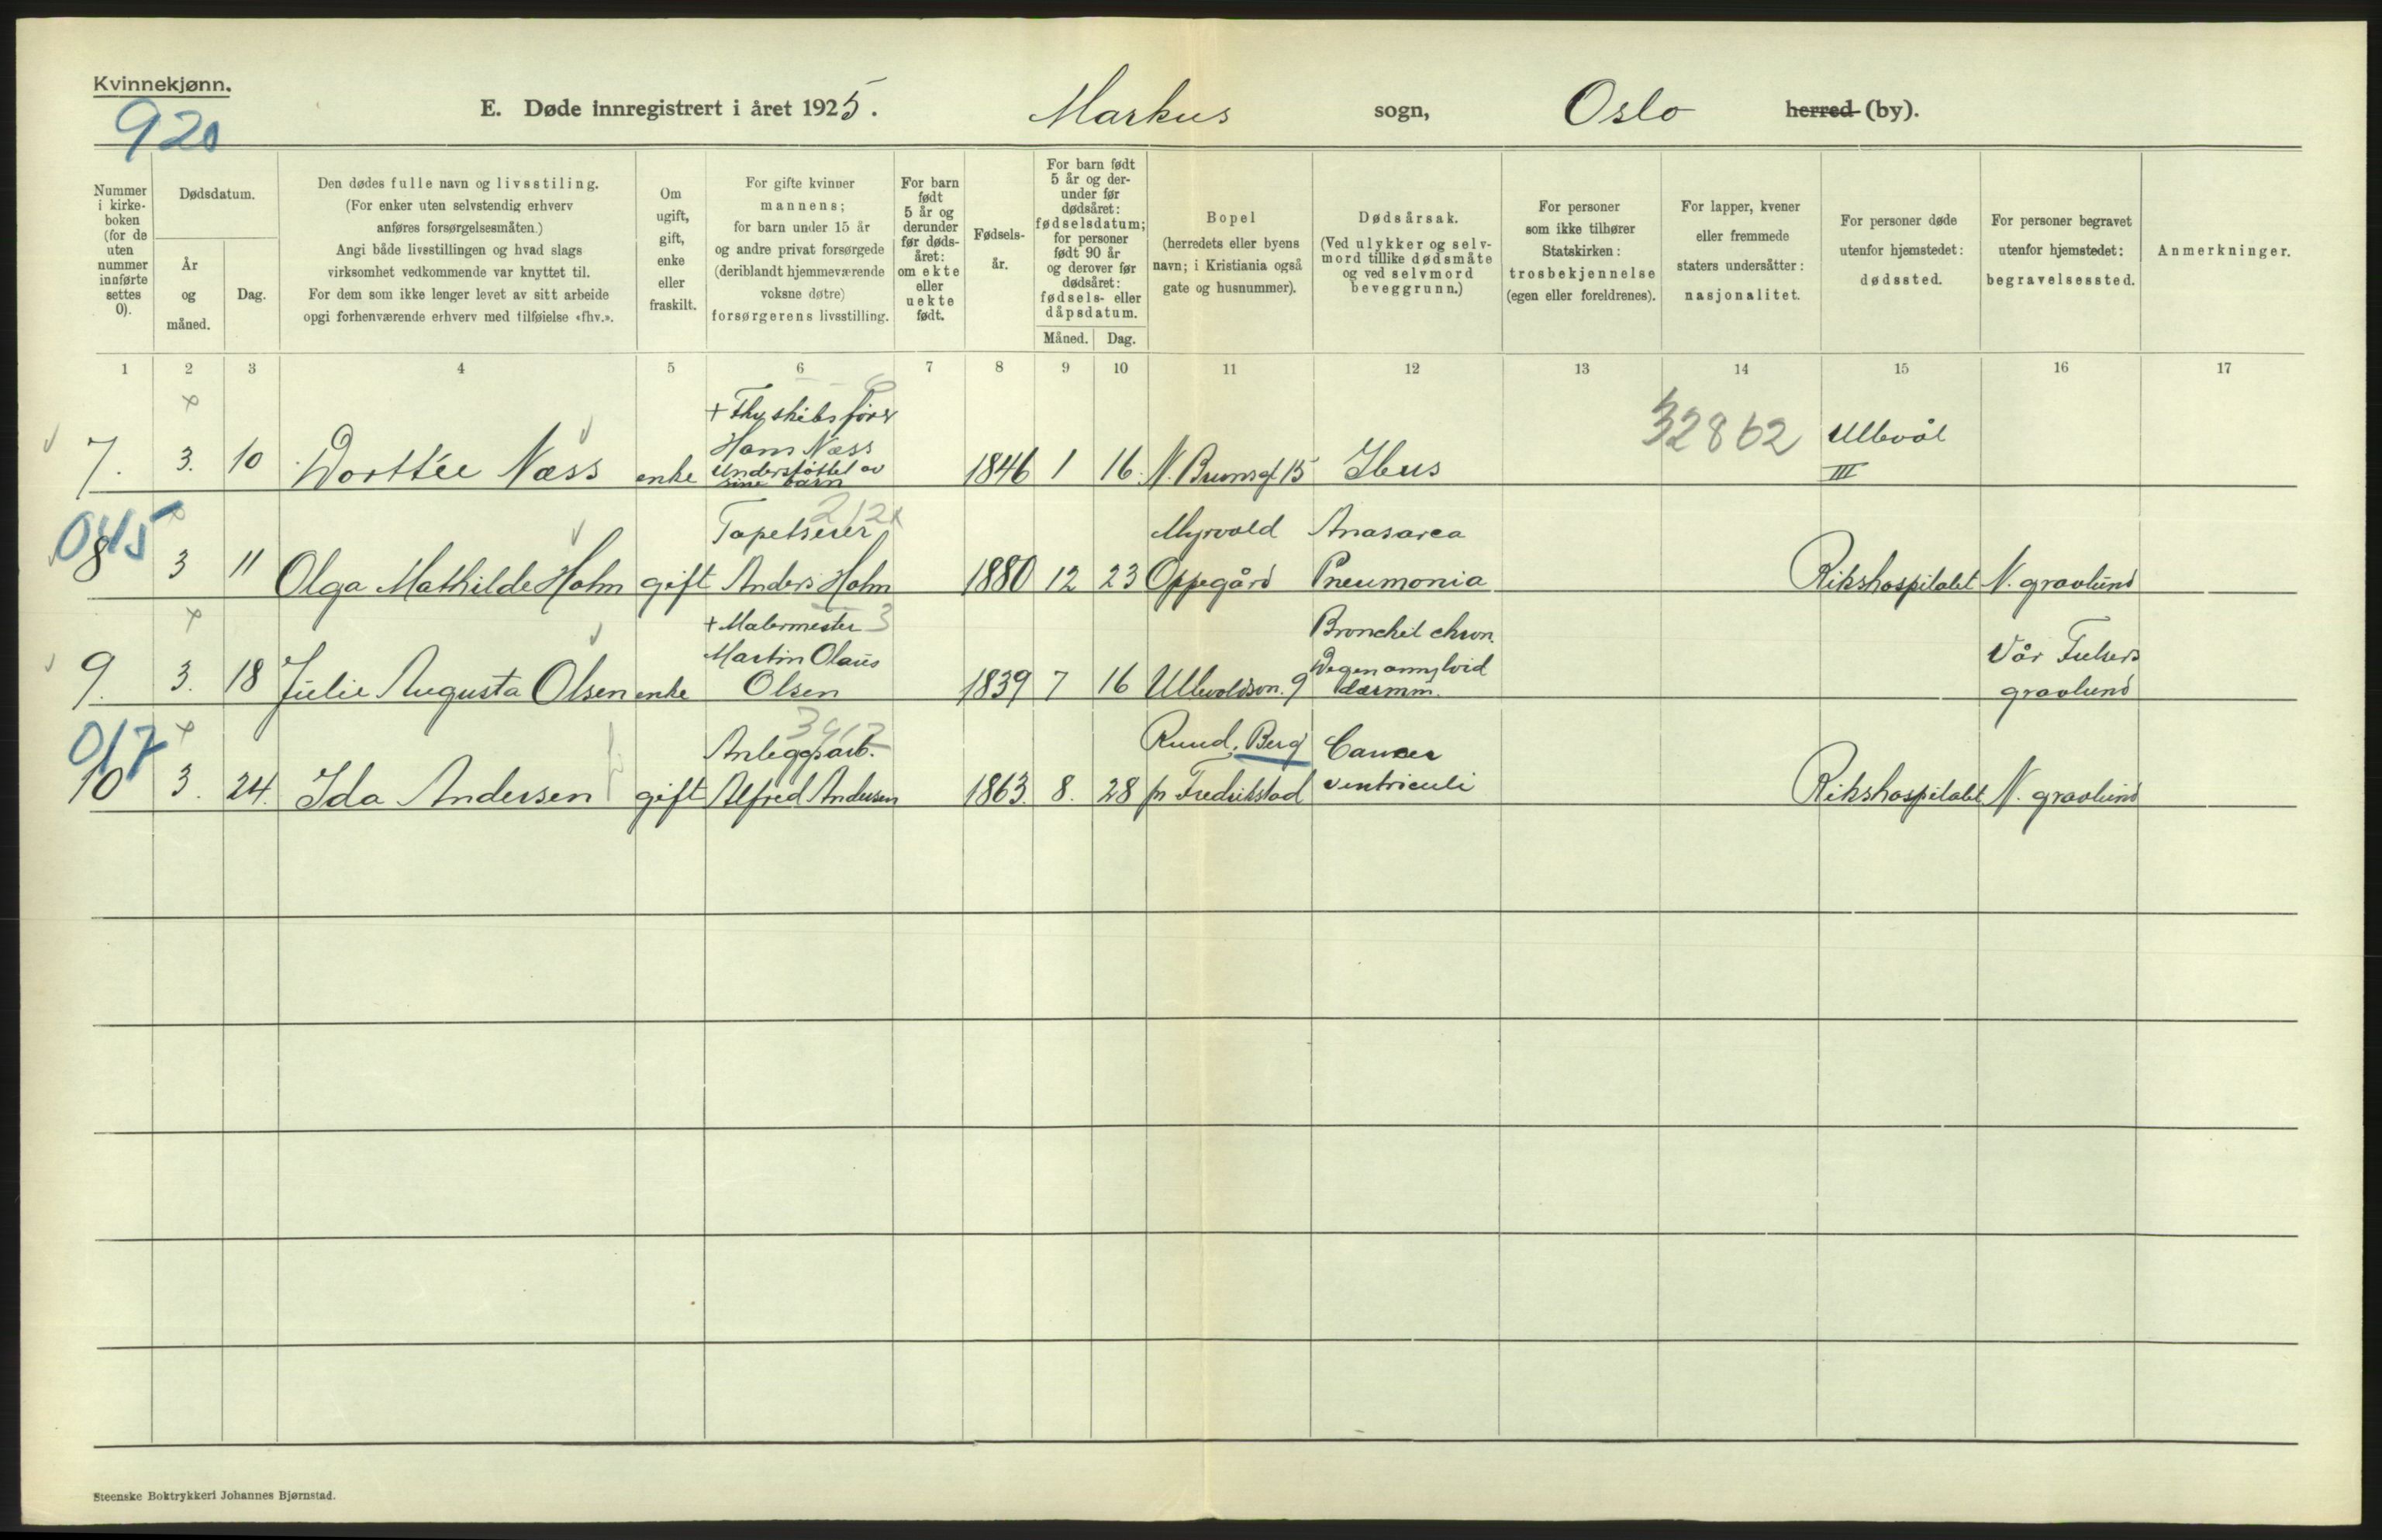 Kvinnekjønn.
920
E. Døde innregistrert i året 1925. Markus sogn, Oslo herred (by).
Nummer i kirke-boken (for de uten nummer innførte settes 0).
Dødsdatum.
År og måned.
Dag.
Den dødes fulle navn og livsstiling.
(For enker uten selvstendig erhverv
anføres forsørgelsesmåten.)
Angi både livsstillingen og hvad slags
virksomhet vedkommende var knyttet til.
For dem som ikke lenger levet av sitt arbeide
opgi forhenværende erhverv med tilføielse «fhv.».
Om ugift, gift, enke eller fraskilt.
For gifte kvinner
mannens;
for barn under 15 år
og andre privat forsørgede
(deriblandt hjemmeværende
voksne døtre)
forsørgerens livsstilling.
For barn født 5 år og derunder før døds-året: om ekte eller uekte født.
Fødsels-år.
For barn født
5 år og der-
under før
dødsåret:
fødselsdatum;
for personer
født 90 år
og derover før
dødsåret:
fødsels- eller
dåpsdatum.
Måned. Dag.
Bopel
(herredets eller byens
navn; i Kristiania også
gate og husnummer).
Dødsårsak.
(Ved ulykker og selv-
mord tillike dødsmåte
og ved selvmord
beveggrunn.)
For personer
som ikke tilhører
Statskirken:
trosbekjennelse
(egen eller foreldrenes).
For lapper, kvener
eller fremmede
staters undersåtter:
nasjonalitet.
For personer døde
utenfor hjemstedet:
dødssted.
For personer begravet
utenfor hjemstedet:
begravelsessted.
Anmerkninger.
1 2 3 4 5 6 7 8 9 10 11 12 13 14 15 16 17
7. 3. 10 Dorthée Næss enke
Hans Næss
Understøttet av
sine barn
1846 1 16. N. Brunsgt. 15 Ileus
32862
Ullevål
III
0815
Tapetserer
Myrvold Anasarca
8 3 11 Olga Mathilde Holm gift Anders Holm 1880 12 23 Oppegård Pneumonia Rikshospitalet N. gravlund
+ Malermester 3
Martin Olaus
Bronchit chron.
Vår Frelsers
9. 3. 18 Julie Augusta Olsen enke Olsen 1839 7 16 Ullevoldsvn. 9
gravlund
017
Anleggsarb.
Ruud, Berg Cancer
10 3. 24. Ida Andersen gift Alfred Andersen 1863. 8. 28 pr Fredrikstad ventriculi Rikshospitalet N. gravlund
Steenske Boktrykkeri Johannes Bjørnstad.